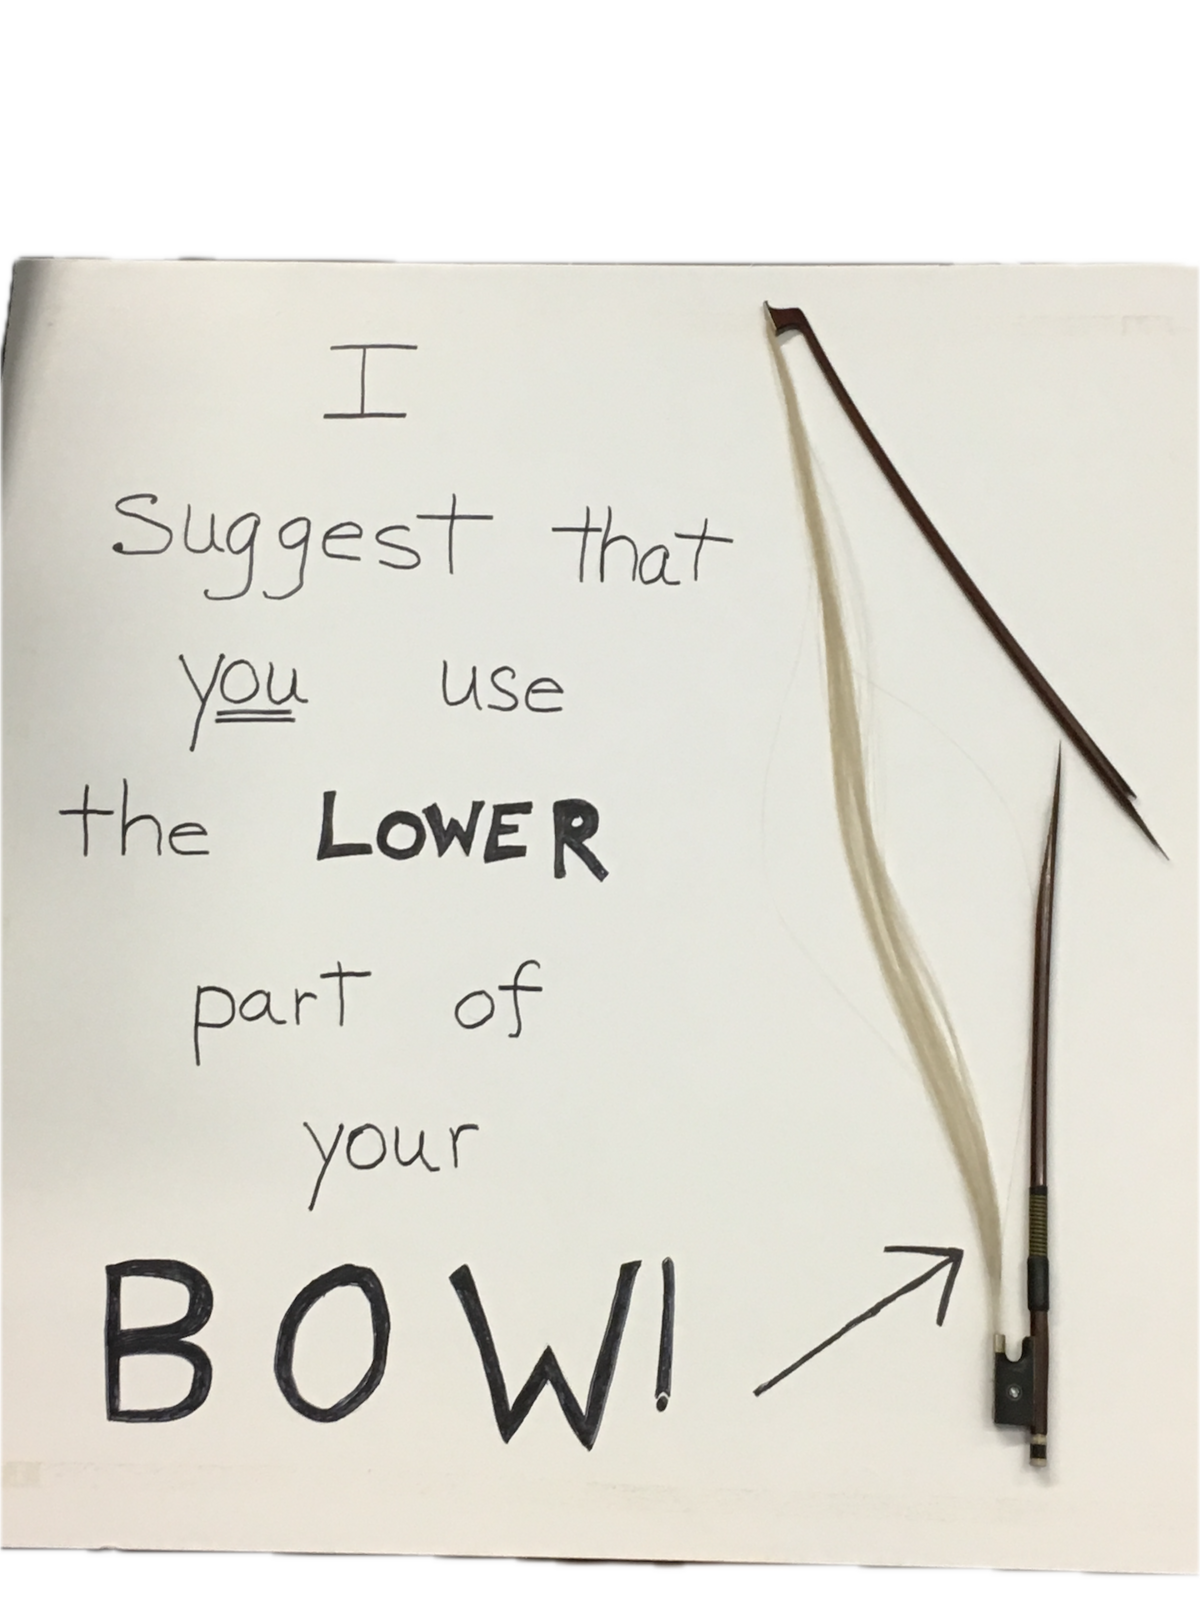 I
Suggest that
you use
the LOWER
part of
your
BOW!